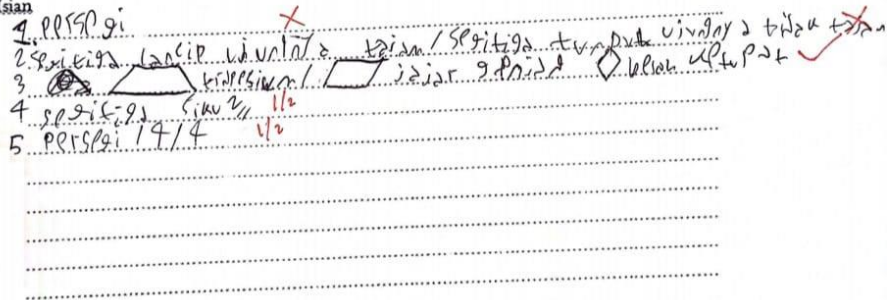 sian
1. persegi
2 segitiga lancip ujungnya tajam / segitiga tumpul ujungnya tidak tajam
3 trapesium / jajar genjang belah ketupat
4 segitiga siku2 1/2
5 persegi / 4 / 4 1/2